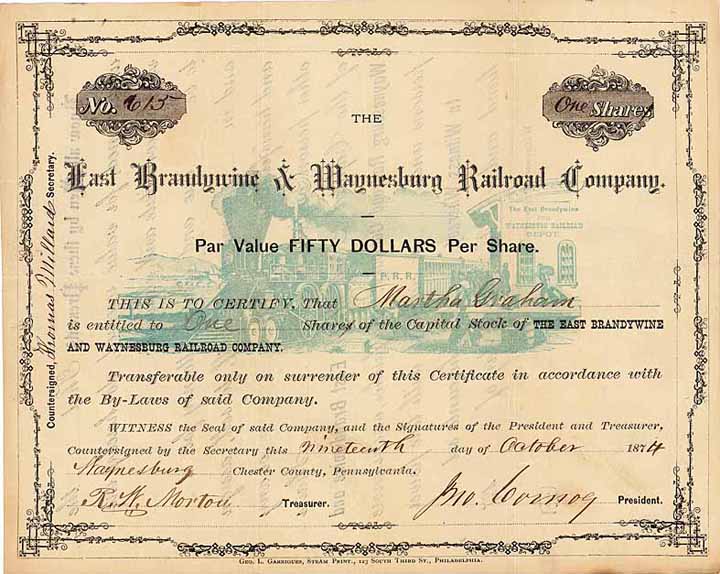 No. 615
One Share
THE
East Brandywine & Waynesburg Railroad Company.
The East Brandywine
WAYNESBURG RAILROAD
DEPOT
Par Value FIFTY DOLLARS Per Share.
P. R. R.
THIS IS TO CERTIFY, That Martha Graham
is entitled to One Shares of the Capital Stock of THE EAST BRANDYWINE
AND WAYNESBURG RAILROAD COMPANY.
Transferable only on surrender of this Certificate in accordance with
the By-Laws of said Company.
WITNESS the Seal of said Company, and the Signatures of the President and Treasurer,
Countersigned by the Secretary this nineteenth day of October 1874
Waynesburg Chester County, Pennsylvania.
R. W. Morton Treasurer. Jno. Cornog President.
Countersigned, Thomas Millard Secretary.
GEO. L. GARRIGUES, STEAM PRINT., 127 SOUTH THIRD ST., PHILADELPHIA.